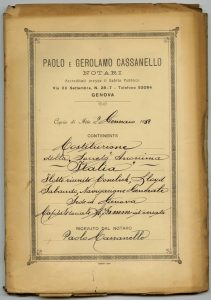 PAOLO E GEROLAMO CASSANELLO
NOTARI
Via XX Settembre, N. 26-7 - Telefono
GENOVA
Copia di Atto 2 Gennaio
CONTENENTE
Costituzione
della Società Anonima
"Italia"
Flotte riunite Cosulich, Lloyd
Sabaudo, Navigazione Generale
Sede in Genova
Capitale sociale
RICEVUTO DAL NOTARO
Paolo Cassanello